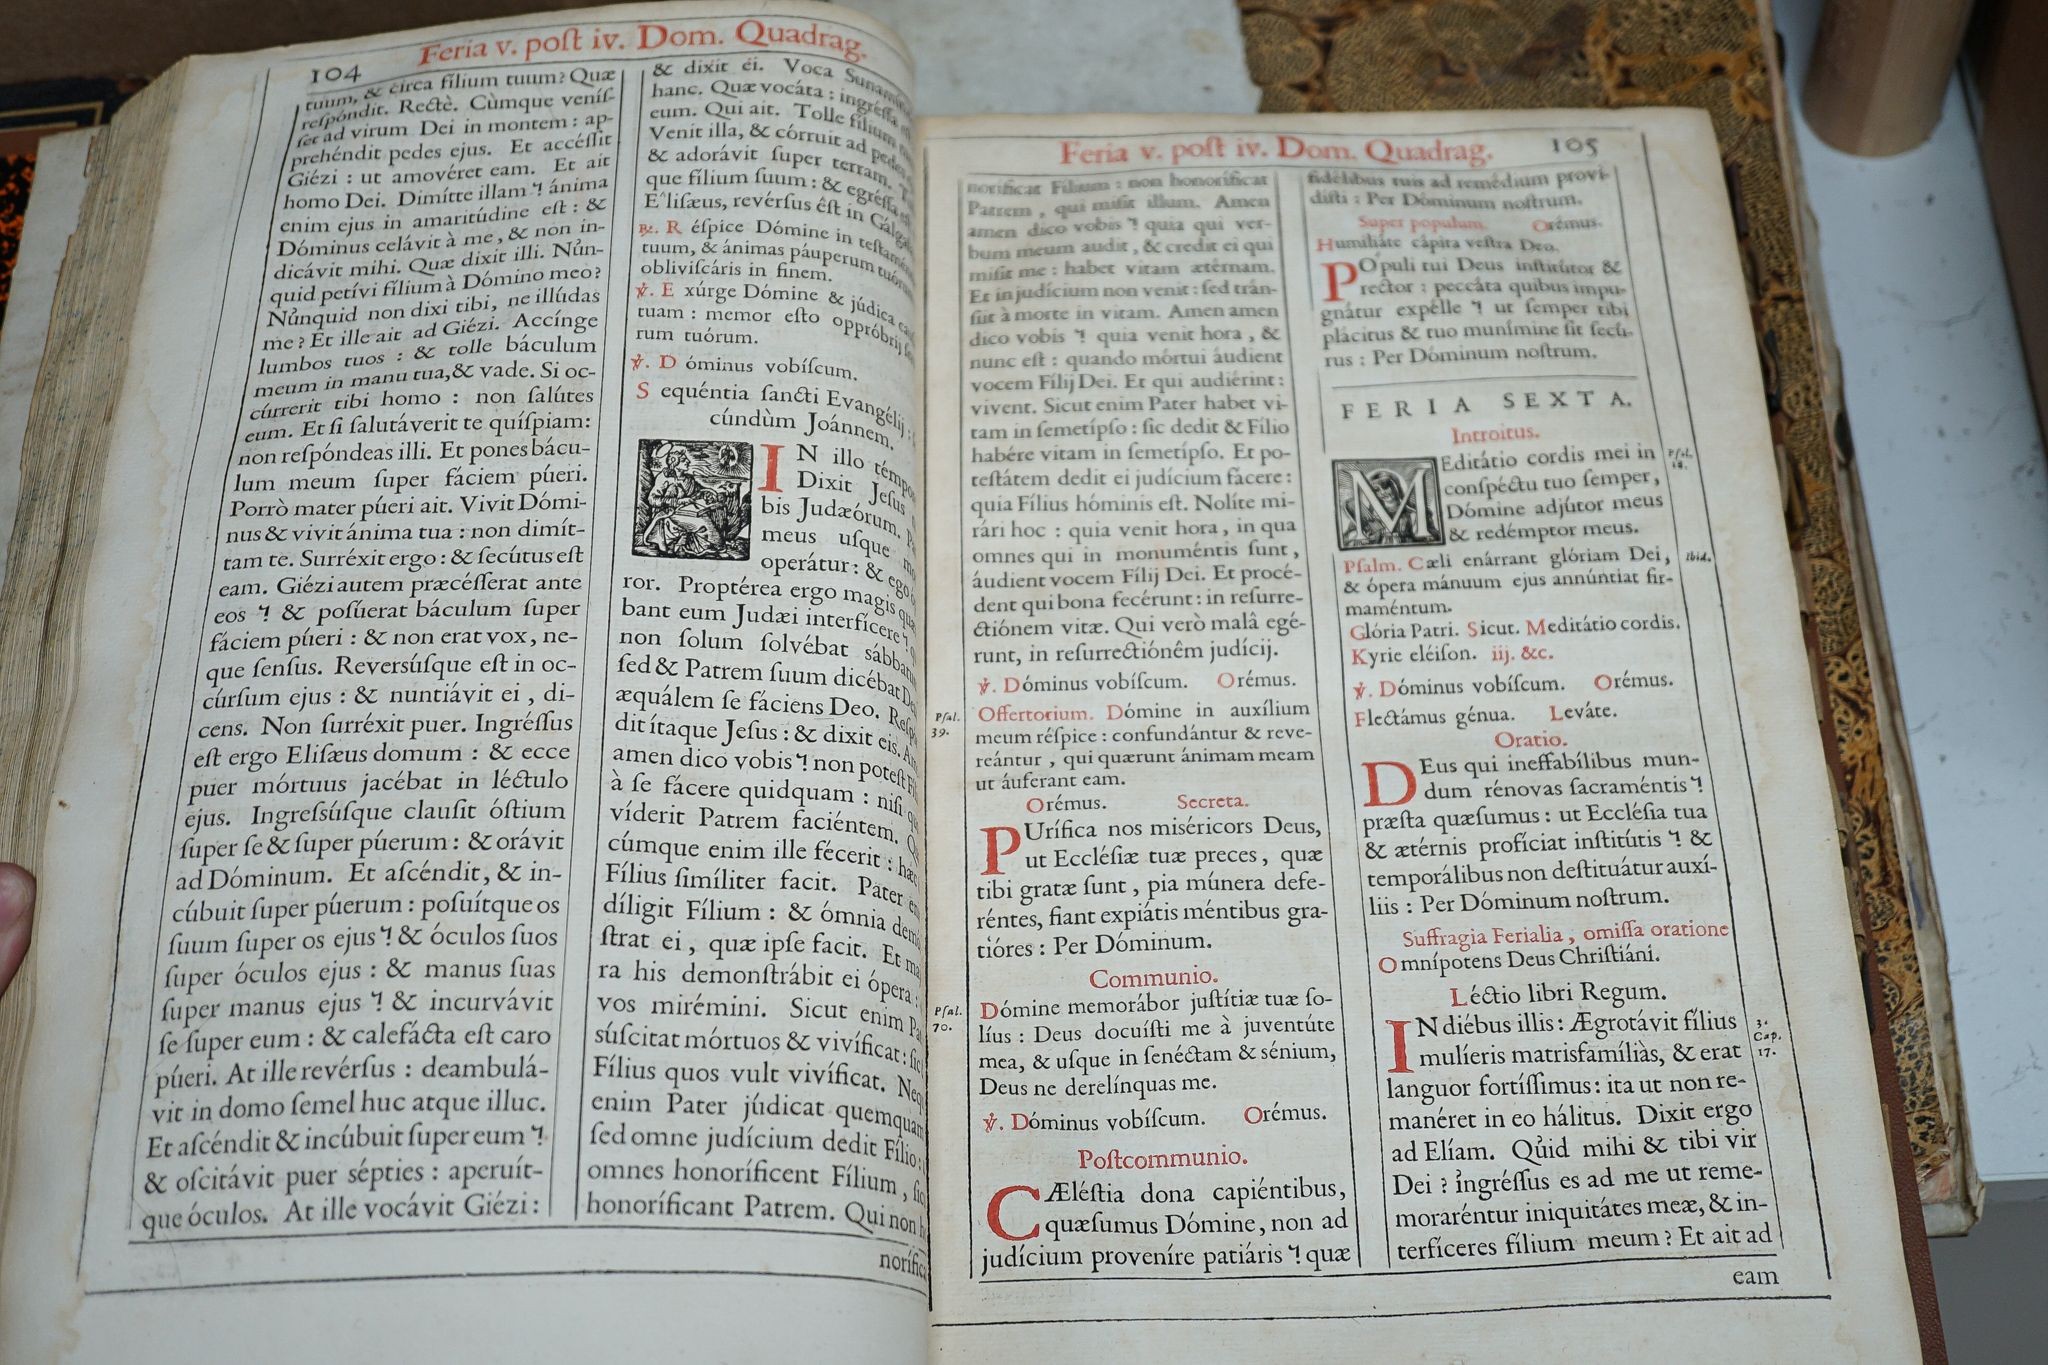 104
Feria v. poſt iv. Dom. Quadrag.
tuum, & circa fílium tuum? Quæ
reſpóndit. Rectè. Cùmque veníſ-
ſet ad virum Dei in montem : ap-
prehéndit pedes ejus. Et accéſſit
Giézi : ut amovéret eam. Et ait
homo Dei. Dimítte illam ⁊! ánima
enim ejus in amaritúdine eſt : &
Dóminus celávit à me, & non in-
dicávit mihi. Quæ dixit illi. Nůn-
quid petívi fílium à Dómino meo?
Nůnquid non dixi tibi, ne illúdas
me? Et ille ait ad Giézi. Accínge
lumbos tuos : & tolle báculum
meum in manu tua, & vade. Si oc-
cúrrerit tibi homo : non ſalútes
eum. Et ſi ſalutáverit te quíſpiam:
non reſpóndeas illi. Et pones bácu-
lum meum ſuper fáciem púeri.
Porrò mater púeri ait. Vivit Dómi-
nus & vivit ánima tua : non dimít-
tam te. Surréxit ergo : & ſecútus eſt
eam. Giézi autem præcéſſerat ante
eos ⁊! & poſúerat báculum ſuper
fáciem púeri : & non erat vox, ne-
que ſenſus. Reversúſque eſt in oc-
cúrſum ejus : & nuntiávit ei , di-
cens. Non ſurréxit puer. Ingréſſus
eſt ergo Eliſæus domum : & ecce
puer mórtuus jacébat in léctulo
ejus. Ingreſsúſque clauſit óſtium
ſuper ſe & ſuper púerum : & orávit
ad Dóminum. Et aſcéndit, & in-
cúbuit ſuper púerum : poſuítque os
ſuum ſuper os ejus ⁊! & óculos ſuos
ſuper óculos ejus : & manus ſuas
ſuper manus ejus ⁊! & incurvávit
ſe ſuper eum : & calefácta eſt caro
púeri. At ille revérſus : deambulá-
vit in domo ſemel huc atque illuc.
Et aſcéndit & incúbuit ſuper eum ⁊!
& oſcitávit puer sépties : aperuít-
que óculos. At ille vocávit Giézi :
& dixit éi. Voca
hanc. Quæ vocáta : ingréſſa
eum. Qui ait. Tolle fílium
Venit illa, & córruit ad pedes
& adorávit ſuper terram.
que fílium ſuum : & egréſſa
E'liſæus, revérſus êſt in Gálgala
℟. Réſpice Dómine in teſtamén
tuum, & ánimas páuperum tuórum
obliviſcáris in finem.
℣. Exúrge Dómine & júdica
tuam : memor eſto oppróbrij
rum tuórum.
℣. Dóminus vobíſcum.
Sequéntia ſancti Evangélij :
cúndùm Joánnem.
IN illo témpo
Dixit Jeſus
bis Judæórum.
meus uſque mo
operátur : & ego
ror. Proptérea ergo magis
bant eum Judæi interfícere ⁊!
non ſolum ſolvébat sábbatum
ſed & Patrem ſuum dicébat
æquálem ſe fáciens Deo.
dit ítaque Jeſus : & dixit eis.
amen dico vobis ⁊! non poteſt
à ſe fácere quidquam : niſi
víderit Patrem faciéntem.
cúmque enim ille fécerit : hæc
Fílius ſimíliter facit. Pater
díligit Fílium : & ómnia
ſtrat ei, quæ ipſe facit. Et
ra his demonſtrábit ei ópera :
vos mirémini. Sicut enim
súſcitat mórtuos & vivíficat :
Fílius quos vult vivíficat.
enim Pater júdicat quemquam
ſed omne judícium dedit Fílio :
omnes honoríficent Fílium,
honoríficant Patrem. Qui non
norífica
Feria v. poſt iv. Dom. Quadrag.
105
norificat Fílium : non honoríficat
Patrem , qui miſit illum. Amen
amen dico vobis ⁊! quia qui ver-
bum meum audit, & credit ei qui
miſit me : habet vitam ætérnam.
Et in judícium non venit : ſed trán-
ſiit à morte in vitam. Amen amen
dico vobis ⁊! quia venit hora , &
nunc eſt : quando mórtui áudient
vocem Fílij Dei. Et qui audíerint :
vivent. Sicut enim Pater habet vi-
tam in ſemetípſo : ſic dedit & Fílio
habére vitam in ſemetípſo. Et po-
teſtátem dedit ei judícium fácere :
quia Fílius hóminis eſt. Nolíte mi-
rári hoc : quia venit hora, in qua
omnes qui in monuméntis ſunt,
áudient vocem Fílij Dei. Et procé-
dent qui bona fecérunt : in reſurre-
ctiónem vitæ. Qui verò malâ egé-
runt, in reſurrectiónêm judícij.
℣. Dóminus vobíſcum. Orémus.
Pſal.
39.
Offertorium. Dómine in auxílium
meum réſpice : confundántur & reve-
reántur , qui quærunt ánimam meam
ut áuferant eam.
Orémus. Secreta.
PUrífica nos miséricors Deus,
ut Eccléſiæ tuæ preces, quæ
tibi gratæ ſunt , pia múnera defe-
réntes, fiant expiátis méntibus gra-
tióres : Per Dóminum.
Communio.
Pſal.
70.
Dómine memorábor juſtítiæ tuæ ſo-
líus : Deus docuíſti me à juventúte
mea, & uſque in ſenéctam & sénium,
Deus ne derelínquas me.
℣. Dóminus vobíſcum. Orémus.
Poſtcommunio.
CÆléſtia dona capiéntibus,
quæſumus Dómine, non ad
judícium proveníre patiáris ⁊! quæ
fidélibus tuis ad remédium proví-
diſti : Per Dóminum noſtrum.
Super populum. Orémus.
Humiliáte cápita veſtra Deo.
POpuli tui Deus inſtitútor &
rector : peccáta quibus impu-
gnátur expélle ⁊! ut ſemper tibi
plácitus & tuo munímine ſit ſecú-
rus : Per Dóminum noſtrum.
FERIA SEXTA.
Introitus.
MEditátio cordis mei in
conſpéctu tuo ſemper,
Dómine adjútor meus
& redémptor meus.
Pſal.
18.
Pſalm. Cæli enárrant glóriam Dei,
& ópera mánuum ejus annúntiat fir-
maméntum.
Ibid.
Glória Patri. Sicut. Meditátio cordis.
Kyrie eléiſon. iij. &c.
℣. Dóminus vobíſcum. Orémus.
Flectámus génua. Leváte.
Oratio.
DEus qui ineffabílibus mun-
dum rénovas ſacraméntis ⁊!
præſta quæſumus : ut Eccléſia tua
& ætérnis profíciat inſtitútis ⁊! &
temporálibus non deſtituátur auxí-
liis : Per Dóminum noſtrum.
Suffragia Ferialia , omiſſa oratione
Omnípotens Deus Chriſtiáni.
Léctio libri Regum.
IN diébus illis : Ægrotávit fílius
mulíeris matrisfamíliàs, & erat
languor fortíſſimus : ita ut non re-
manéret in eo hálitus. Dixit ergo
ad Elíam. Qůid mihi & tibi vir
Dei ? ingréſſus es ad me ut reme-
moraréntur iniquitátes meæ, & in-
terfíceres fílium meum? Et ait ad
3.
Cap.
17.
eam